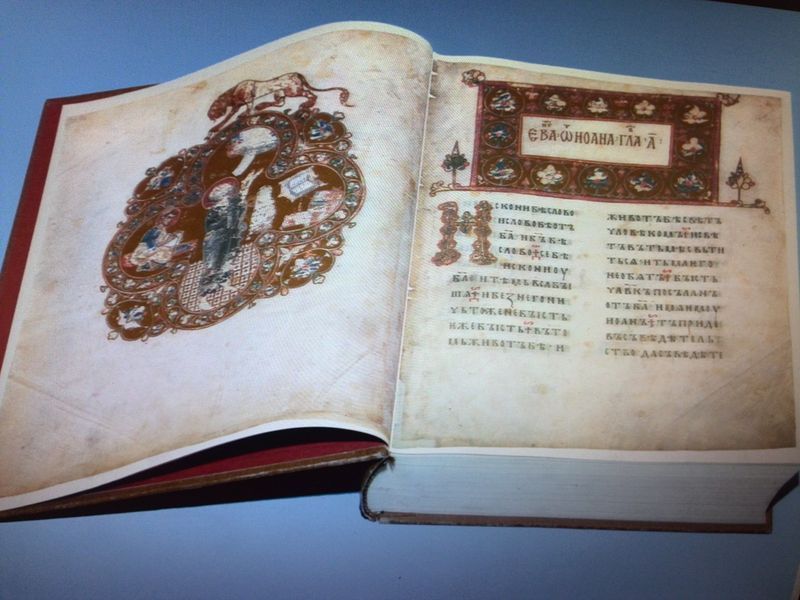 ЕВⷢ҇А·Ѿ ИОАНА·ГЛА·А҃·
ИСКОНИ БѢ СЛОВО
И СЛОВО БѢ ОТЪ
БА҃ И БЪ҃ БѢ
СЛОВО ⁘ СЕ БѢ
ИСКОНИ ОУ
БА҃ И ТѢМЬ ВЬСА БЫ
ША ⁘ И БЕЗ НЕГО НИ
ЧЬТОЖЕ НЕ БЫСТЬ
ѤЖЕ БЫСТЬ ⁘ ВЪ ТО
МЬ ЖИВОТЪ БѢ · И
ЖИВОТЪ БѢ СВѢТЪ
ЧЛОВѢКОМЪ ⁘ И СВѢ
ТЪ ВЪ ТЬМѢ СВЬТИ
ТЬСѦ · И ТЬМА ѤГО
НЕ ОБѦТЪ ⁘ БЫСТЬ
ЧЛ҃ВКЪ ПОСЪЛАНЪ
ОТЪ БА҃ · ИМѦ ѤМОУ
ИОАНЪ ⁘ ТЪ ПРИДЕ
ВЪ СЪВѢДѢТЕЛЬ
СТВО ДА СЪВѢДѢТЕ